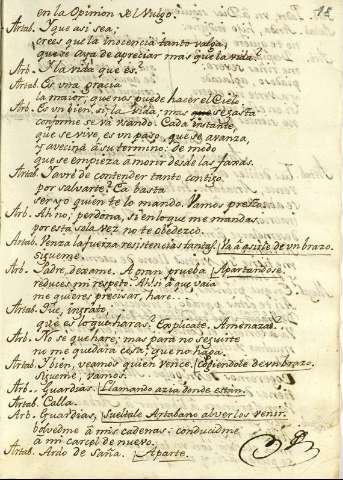 18
en la Opinion del Vulgo.
Artab. Y que asi sea;
crees que la inocencia tanto valga,
que se aya de apreciar mas que la vida?
Arb. Y la vida que es?
Artab. Es vna gracia
la maior, que nos puede hacer el Cielo
Arb. Es vn bien si, la vida; mas se gasta
conforme se vâ vsando. Cada instante,
que se vive, es vn paso, que se avanza,
y avecina â su termino. De modo
que se empieza â morir desde las faxas.
Artab. Y avrê de contender tanto contigo
por salvarte? Ea basta
ser yo quien te lo mando. Vamos presto.
Arb. Ah no; perdona, si en lo que me mandas
por esta sola vez no te obedezco.
Artab. Venza la fuerza resistencias tantas. Va â asirle de vn brazo.
sigueme.
Arb. Padre, dexame. A gran prueba Apartandose
reduces mi respeto. Ah! si â que vaia
me quieres precisar, hare...
Artab. Que, ingrato,
que es lo que haras? Explicate. Amenazas?
Arb. No se que hare; mas para no seguirte
no me quedara cosa, que no haga.
Artab. Y bien, veamos quien vence. Cogiendole de vn brazo.
Sigueme, vamos.
Arb. Guardias. Llamando azia donde estàn.
Artab. Calla.
Arb. Guardias, Sueltale Artabano al verlos venir.
bolvedme â mis cadenas: conducidme
â mi carcel de nuevo.
Artab. Ardo de saña. Aparte.